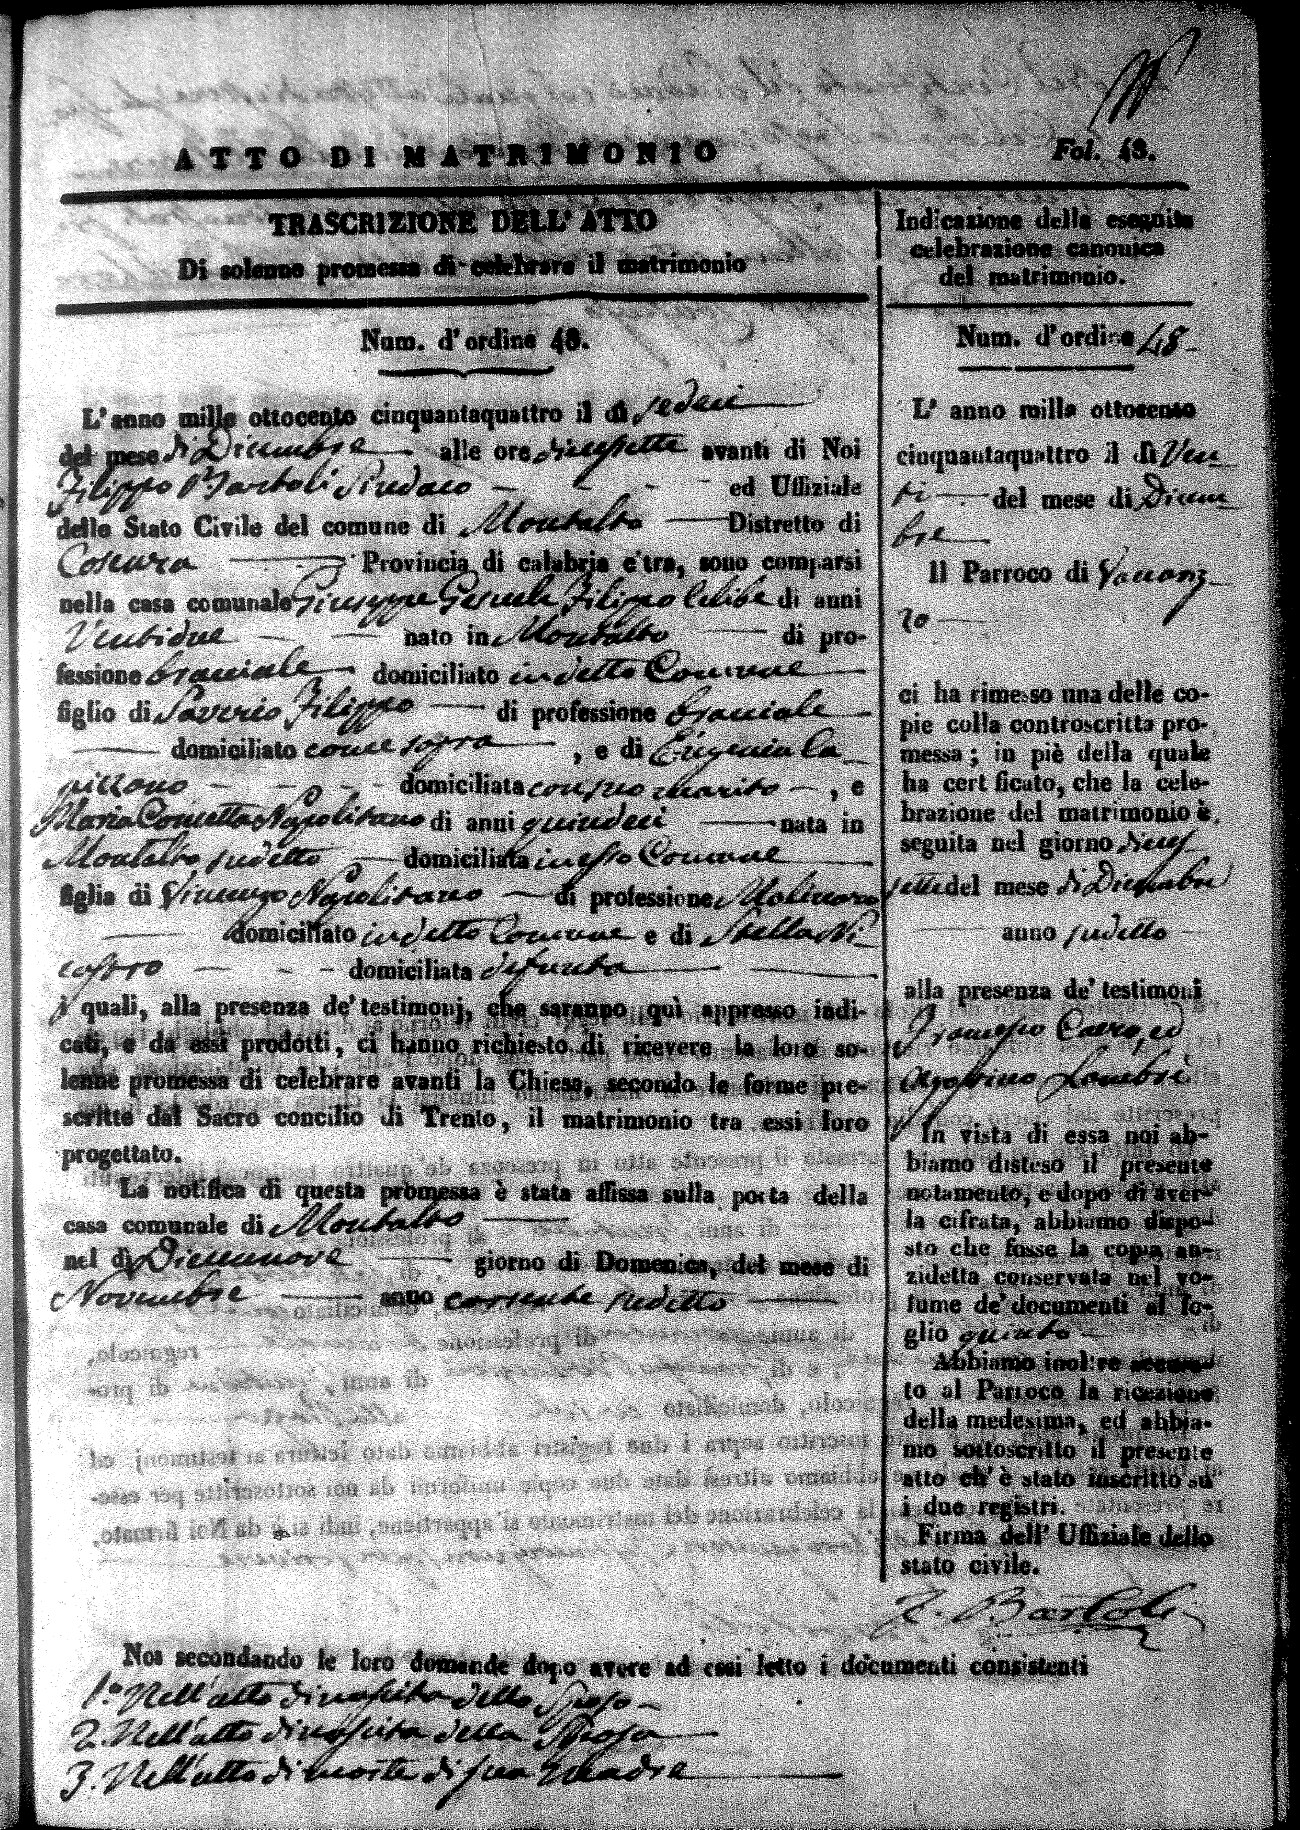 ATTO DI MATRIMONIO
Fol. 48.
TRASCRIZIONE DELL' ATTO
Di solenne promessa di celebrare il matrimonio
Num. d'ordine 48.
L'anno mille ottocento cinquantaquattro il dì sedeci
del mese di Dicembre alle ore diecisette avanti di Noi
Filippo Bartoli Sindaco ed Uffiziale
dello Stato Civile del comune di Montalto Distretto di
Cosenza Provincia di calabria c'tra, sono comparsi
nella casa comunale Giuseppe Filippo celibe di anni
Ventidue nato in Montalto di pro-
fessione bracciale domiciliato in detto Comune
figlio di Saverio Filippo di professione bracciale
domiciliato come sopra , e di Eugenia Ca
pizzano domiciliata con suo marito , e
Maria Concetta Napolitano di anni quindeci nata in
Montalto sudetto domiciliata in esso Comune
figlia di Vincenzo Napolitano di professione Molinaro
domiciliato in detto Comune e di Stella Ni
castro domiciliata defunta
i quali, alla presenza de' testimonj, che saranno quì appresso indi-
cati, e da essi prodotti, ci hanno richiesto di ricevere la loro so-
lenne promessa di celebrare avanti la Chiesa, secondo le forme pre-
scritte dal Sacro concilio di Trento, il matrimonio tra essi loro
progettato.
La notifica di questa promessa è stata affissa sulla porta della
casa comunale di Montalto
nel dì Diecinnove giorno di Domenica, del mese di
Novembre anno corrente sudetto
Indicazione della eseguita
celebrazione canonica
del matrimonio.
Num. d'ordine 48
L' anno mille ottocento
cinquantaquattro il dì Ven
ti del mese di Dicem
bre
Il Parroco di Vaccariz
zo
ci ha rimesso una delle co-
pie colla controscritta pro-
messa; in piè della quale
ha cert ficato, che la cele-
brazione del matrimonio è
seguita nel giorno dieci
sette del mese di Dicembre
anno sudetto
alla presenza de' testimoni
Francesco ed
Agostino
In vista di essa noi ab-
biamo disteso il presente
notamento, e dopo di aver-
la cifrata, abbiamo dispo-
sto che fosse la copia an-
zidetta conservata nel vo-
lume de' documenti al fo-
glio quinto
Abbiamo inoltre accusa-
to al Parroco la ricezione
della medesima, ed abbia-
mo sottoscritto il presente
atto ch' è stato inscritto su'
i due registri.
Firma dell' Uffiziale dello
stato civile.
F. Bartoli
Noi secondando le loro domande dopo avere ad essi letto i documenti consistenti
1.° Nell'atto di nascita dello Sposo
2. Nell'atto di nascita della Sposa
3. Nell'atto di morte di sua Madre